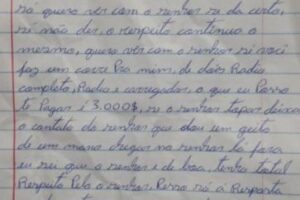 só quero ver com o senhor se da certo,
si não der, o respeito continua o
mesmo, quero ver com o senhor si voci
faz um corre Pra mim, de dois Radio
completo, Radio e carregador, o que eu Posso
te Pagar é 3.000$, se o senhor topar deixa
o contato do senhor que dou um geito
de um mano chegar no senhor lá fora
eu sei que o senhor é de boa, tenho total
Respeito Pelo o senhor, Posso só a Resposta